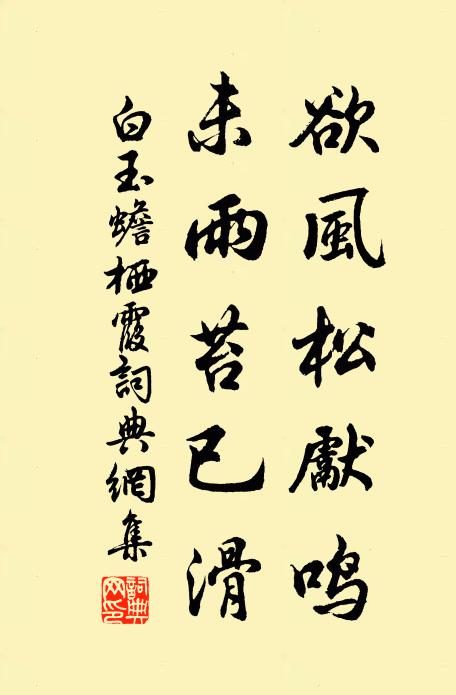 欲風松獻鳴
未雨苔已滑
白玉蟾栖霞詞典網集
詞典網印